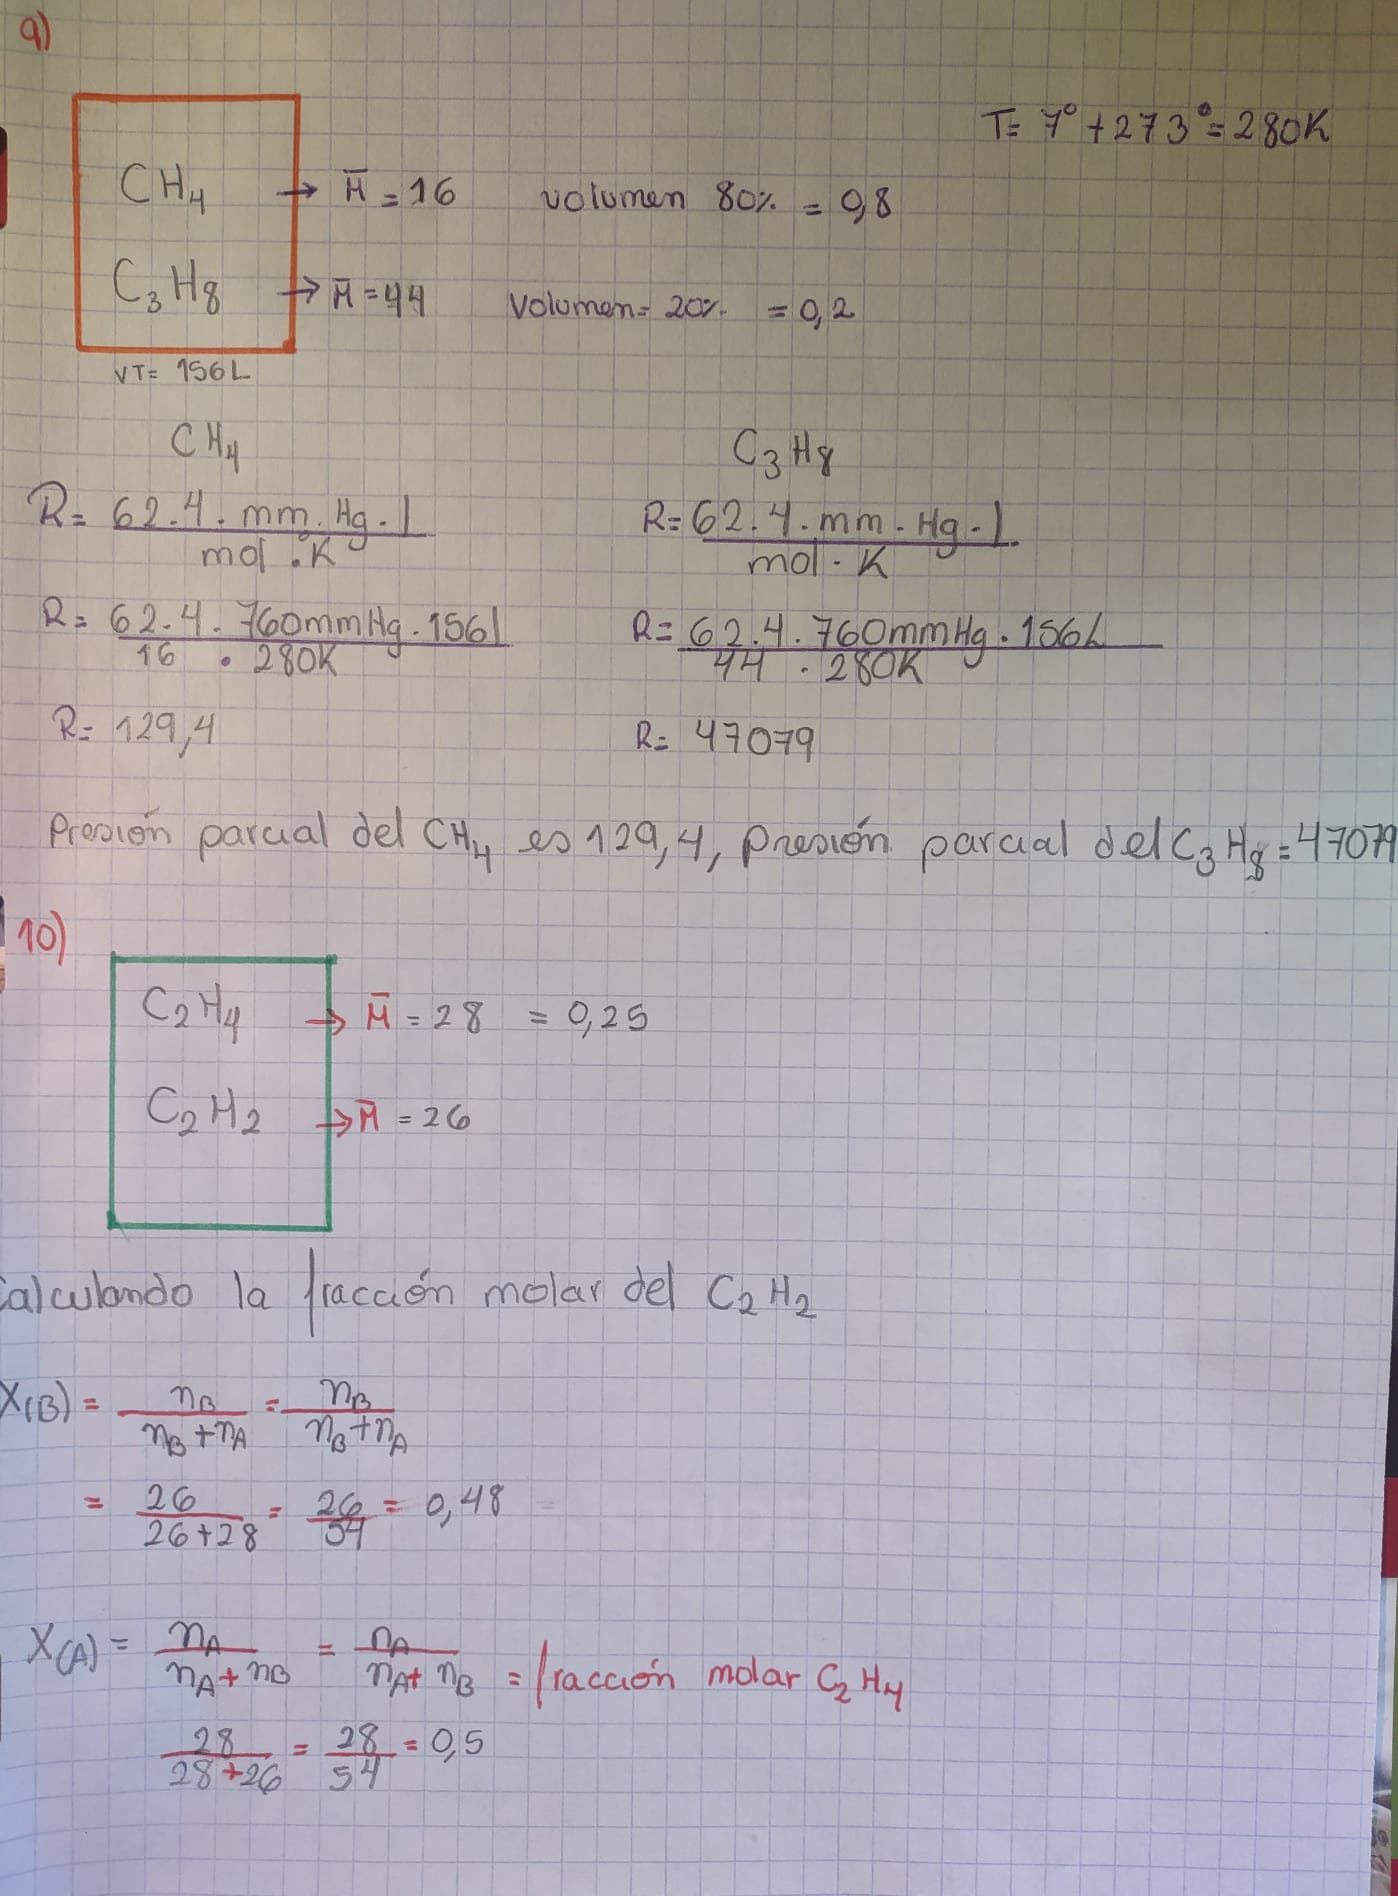 9)
T= 7° + 273° = 280K
CH4 → M̄ = 16 volumen 80% = 0,8
C3H8 → M̄ = 44 Volumen = 20% = 0,2
VT= 156L
CH4 C3H8
R= 62.4 . mm . Hg . l / mol . K R= 62.4 . mm . Hg . l / mol . K
R= 62.4 . 760mmHg . 156l / 16 . 280K R= 62.4 . 760mmHg . 156L / 44 . 280K
R= 129,4 R= 47079
Presión parcial del CH4 es 129,4, presión parcial del C3H8 = 47079
10)
C2H4 → M̄ = 28 = 0,25
C2H2 → M̄ = 26
Calculando la fracción molar del C2H2
X(B) = nB / nB + nA = nB / nB + nA
= 26 / 26+28 = 26 / 54 = 0,48
X(A) = nA / nA + nB = nA / nA + nB = fracción molar C2H4
28 / 28+26 = 28 / 54 = 0,5